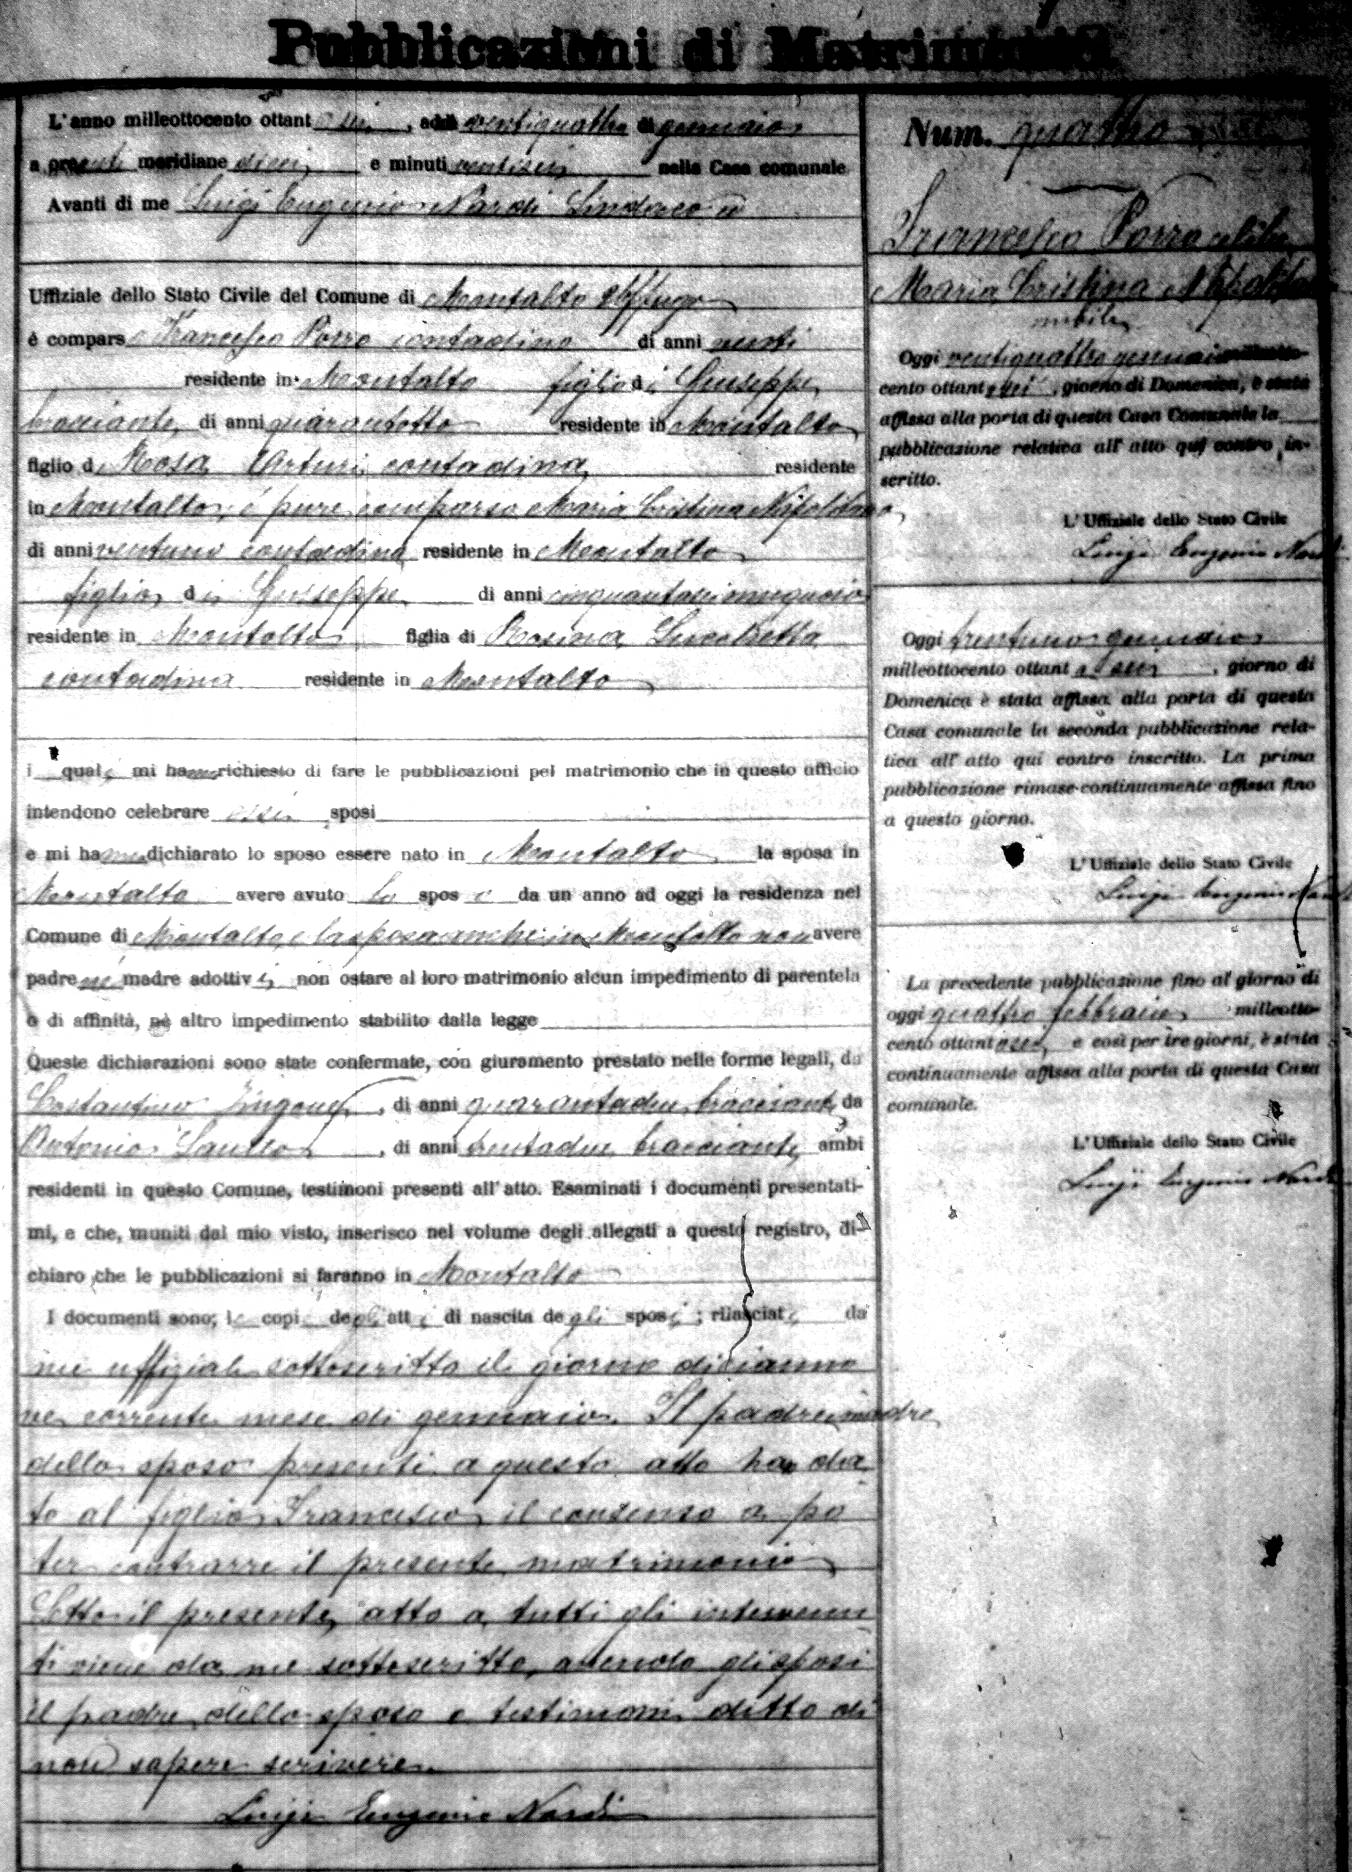 Pubblicazioni di Matrimonio
L'anno milleottocento ottantasei, addì ventiquattro di gennaio
a meridiane dieci e minuti ventisei nella Casa comunale
Avanti di me Luigi Eugenio Nardi Sindaco
Uffiziale dello Stato Civile del Comune di Montalto Uffugo
è comparso Francesco Porro contadino di anni venti
residente in Montalto figlio di Giuseppe
bracciante, di anni quarantotto residente in Montalto
figlio di Rosa Arturi contadina residente
in Montalto, è pure comparsa Maria Cristina
di anni ventuno contadina residente in Montalto
figlia di Giuseppe di anni
residente in Montalto figlia di Rosina
contadina residente in Montalto
i quali mi hanno richiesto di fare le pubblicazioni pel matrimonio che in questo ufficio
intendono celebrare essi sposi
e mi hanno dichiarato lo sposo essere nato in Montalto la sposa in
Montalto avere avuto lo sposo da un anno ad oggi la residenza nel
Comune di Montalto, e la sposa anche in Montalto non avere
padre nè madre adottivi, non ostare al loro matrimonio alcun impedimento di parentela
o di affinità, nè altro impedimento stabilito dalla legge
Queste dichiarazioni sono state confermate, con giuramento prestato nelle forme legali, da
Costantino Zingone, di anni quarantadue bracciante da
Antonio Saullo, di anni trentadue bracciante, ambi
residenti in questo Comune, testimoni presenti all'atto. Esaminati i documenti presentati-
mi, e che, muniti dal mio visto, inserisco nel volume degli allegati a questo registro, di-
chiaro che le pubblicazioni si faranno in Montalto
I documenti sono; le copie degli atti di nascita degli sposi; rilasciate da
me uffiziale sottoscritto il giorno dicianno
ve corrente mese di gennaio. Il padre e madre
dello sposo presenti a questo atto han da
to al figlio Francesco il consenso a po
ter contrarre il presente matrimonio
Letto il presente atto a tutti gli intervenu
ti viene da me sottoscritto, avendo gli sposi
il padre dello sposo e testimoni ditto di
non sapere scrivere.
Luigi Eugenio Nardi
Num. quattro
Francesco Porro celibe
Maria Cristina
nubile
Oggi ventiquattro gennaio milleotto-
cento ottantasei, giorno di Domenica, è stata
affissa alla porta di questa Casa Comunale la
pubblicazione relativa all'atto qui contro in-
scritto.
L'Uffiziale dello Stato Civile
Luigi Eugenio Nardi
Oggi trentuno gennaio
milleottocento ottantasei, giorno di
Domenica è stata affissa alla porta di questa
Casa comunale la seconda pubblicazione rela-
tica all'atto qui contro inscritto. La prima
pubblicazione rimase continuamente affissa fino
a questo giorno.
L'Uffiziale dello Stato Civile
Luigi Eugenio Nardi
La precedente pubblicazione fino al giorno di
oggi quattro febbraio milleotto-
cento ottantasei, e così per tre giorni, è stata
continuamente affissa alla porta di questa Casa
comunale.
L'Uffiziale dello Stato Civile
Luigi Eugenio Nardi